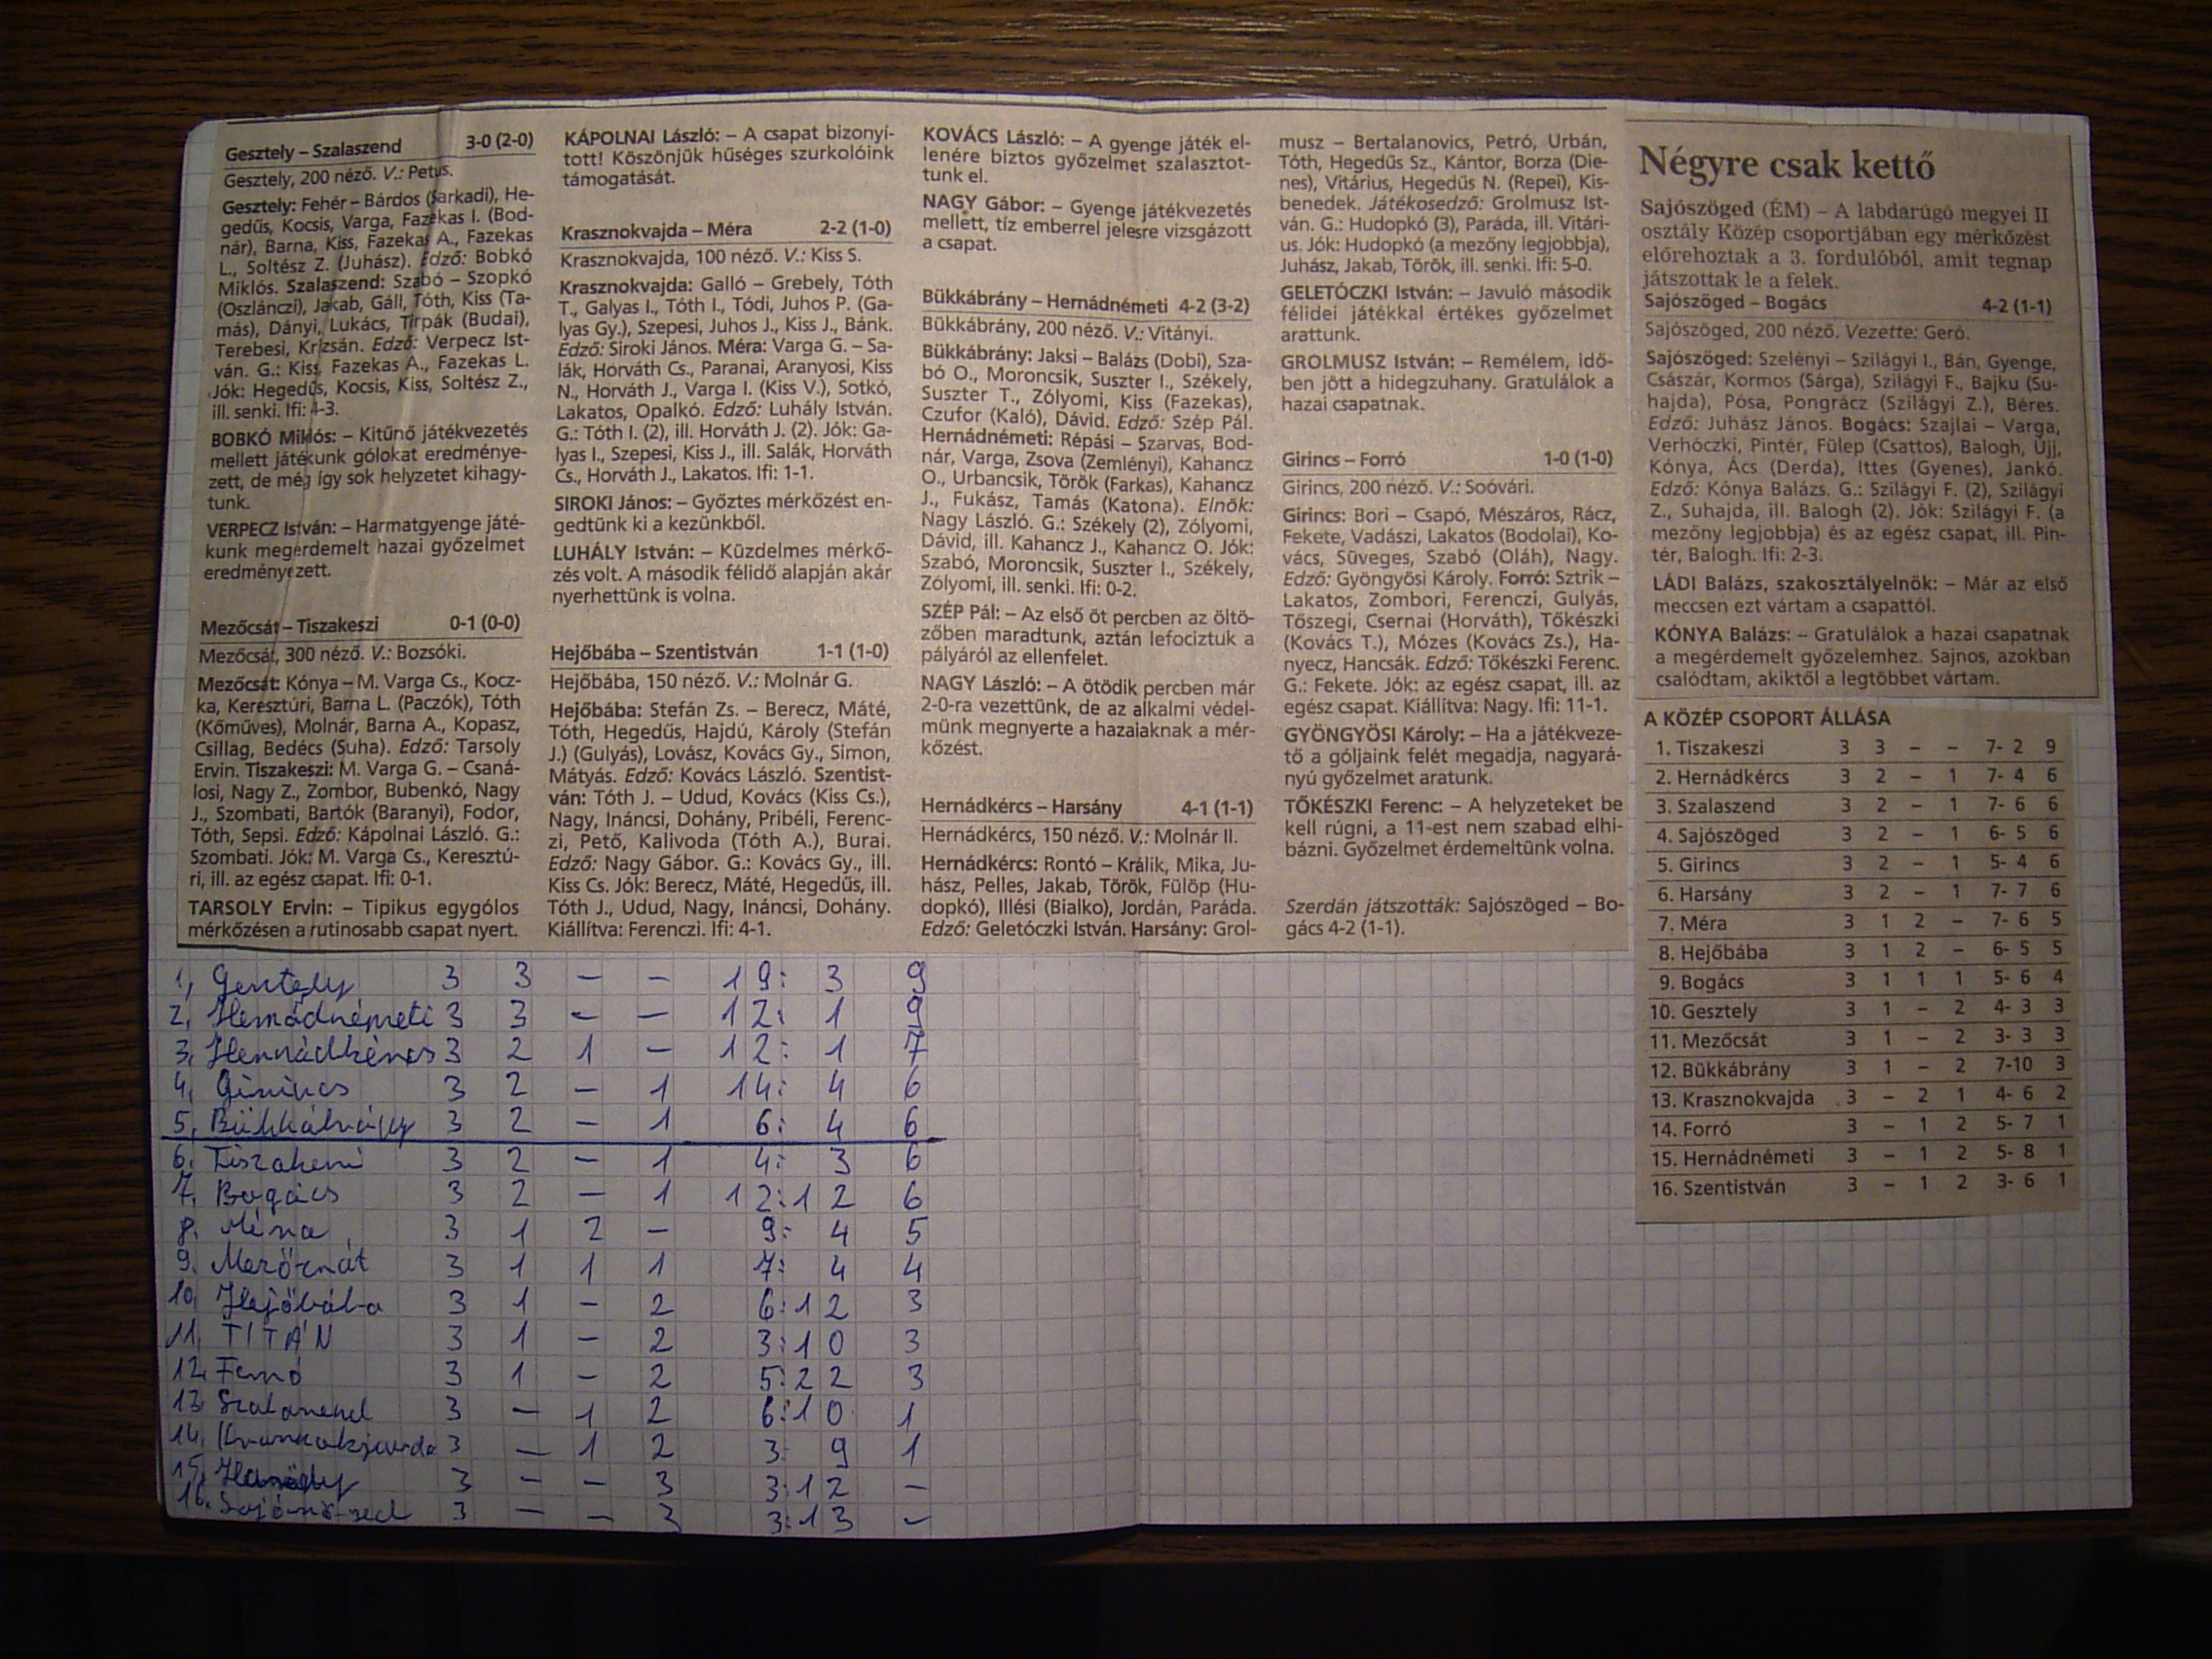 Gesztely – Szalaszend 3-0 (2-0)
Gesztely, 200 néző. V.: Petus.
Gesztely: Fehér – Bárdos (Sarkadi), He-
gedűs, Kocsis, Varga, Fazekas I. (Bod-
nár), Barna, Kiss, Fazekas A., Fazekas
L., Soltész Z. (Juhász). Edző: Bobkó
Miklós. Szalaszend: Szabó – Szopkó
(Oszlánczi), Jakab, Gáll, Tóth, Kiss (Ta-
más), Dányi, Lukács, Tirpák (Budai),
Terebesi, Krizsán. Edző: Verpecz Ist-
ván. G.: Kiss, Fazekas A., Fazekas L.
Jók: Hegedűs, Kocsis, Kiss, Soltész Z.,
ill. senki. Ifi: 4-3.
BOBKÓ Miklós: – Kitűnő játékvezetés
mellett játékunk gólokat eredménye-
zett, de még így sok helyzetet kihagy-
tunk.
VERPECZ István: – Harmatgyenge játé-
kunk megérdemelt hazai győzelmet
eredményezett.
Mezőcsát – Tiszakeszi 0-1 (0-0)
Mezőcsát, 300 néző. V.: Bozsóki.
Mezőcsát: Kónya – M. Varga Cs., Kocz-
ka, Keresztúri, Barna L. (Paczók), Tóth
(Kőműves), Molnár, Barna A., Kopasz,
Csillag, Bedécs (Suha). Edző: Tarsoly
Ervin. Tiszakeszi: M. Varga G. – Csaná-
losi, Nagy Z., Zombor, Bubenkó, Nagy
J., Szombati, Bartók (Baranyi), Fodor,
Tóth, Sepsi. Edző: Kápolnai László. G.:
Szombati. Jók: M. Varga Cs., Keresztú-
ri, ill. az egész csapat. Ifi: 0-1.
TARSOLY Ervin: – Tipikus egygólos
mérkőzésen a rutinosabb csapat nyert.
KÁPOLNAI László: – A csapat bizonyí-
tott! Köszönjük hűséges szurkolóink
támogatását.
Krasznokvajda – Méra 2-2 (1-0)
Krasznokvajda, 100 néző. V.: Kiss S.
Krasznokvajda: Galló – Grebely, Tóth
T., Galyas I., Tóth I., Tódi, Juhos P. (Ga-
lyas Gy.), Szepesi, Juhos J., Kiss J., Bánk.
Edző: Siroki János. Méra: Varga G. – Sa-
lák, Horváth Cs., Paranai, Aranyosi, Kiss
N., Horváth J., Varga I. (Kiss V.), Sotkó,
Lakatos, Opalkó. Edző: Luhály István.
G.: Tóth I. (2), ill. Horváth J. (2). Jók: Ga-
lyas I., Szepesi, Kiss J., ill. Salák, Horváth
Cs., Horváth J., Lakatos. Ifi: 1-1.
SIROKI János: – Győztes mérkőzést en-
gedtünk ki a kezünkből.
LUHÁLY István: – Küzdelmes mérkő-
zés volt. A második félidő alapján akár
nyerhettünk is volna.
Hejőbába – Szentistván 1-1 (1-0)
Hejőbába, 150 néző. V.: Molnár G.
Hejőbába: Stefán Zs. – Berecz, Máté,
Tóth, Hegedűs, Hajdú, Károly (Stefán
J.) (Gulyás), Lovász, Kovács Gy., Simon,
Mátyás. Edző: Kovács László. Szentist-
ván: Tóth J. – Udud, Kovács (Kiss Cs.),
Nagy, Ináncsi, Dohány, Pribéli, Ferenc-
zi, Pető, Kalivoda (Tóth A.), Burai.
Edző: Nagy Gábor. G.: Kovács Gy., ill.
Kiss Cs. Jók: Berecz, Máté, Hegedűs, ill.
Tóth J., Udud, Nagy, Ináncsi, Dohány.
Kiállítva: Ferenczi. Ifi: 4-1.
KOVÁCS László: – A gyenge játék el-
lenére biztos győzelmet szalasztot-
tunk el.
NAGY Gábor: – Gyenge játékvezetés
mellett, tíz emberrel jelesre vizsgázott
a csapat.
Bükkábrány – Hernádnémeti 4-2 (3-2)
Bükkábrány, 200 néző. V.: Vitányi.
Bükkábrány: Jaksi – Balázs (Dobi), Sza-
bó O., Moroncsik, Suszter I., Székely,
Suszter T., Zólyomi, Kiss (Fazekas),
Czufor (Kaló), Dávid. Edző: Szép Pál.
Hernádnémeti: Répási – Szarvas, Bod-
nár, Varga, Zsova (Zemlényi), Kahancz
O., Urbancsik, Török (Farkas), Kahancz
J., Fukász, Tamás (Katona). Elnök:
Nagy László. G.: Székely (2), Zólyomi,
Dávid, ill. Kahancz J., Kahancz O. Jók:
Szabó, Moroncsik, Suszter I., Székely,
Zólyomi, ill. senki. Ifi: 0-2.
SZÉP Pál: – Az első öt percben az öltö-
zőben maradtunk, aztán lefociztuk a
pályáról az ellenfelet.
NAGY László: – A ötödik percben már
2-0-ra vezettünk, de az alkalmi védel-
münk megnyerte a hazaiaknak a mér-
kőzést.
Hernádkércs – Harsány 4-1 (1-1)
Hernádkércs, 150 néző. V.: Molnár II.
Hernádkércs: Rontó – Králik, Mika, Ju-
hász, Pelles, Jakab, Török, Fülöp (Hu-
dopkó), Illési (Bialko), Jordán, Paráda.
Edző: Geletóczki István. Harsány: Grol-
musz – Bertalanovics, Petró, Urbán,
Tóth, Hegedűs Sz., Kántor, Borza (Die-
nes), Vitárius, Hegedűs N. (Repei), Kis-
benedek. Játékosedző: Grolmusz Ist-
ván. G.: Hudopkó (3), Paráda, ill. Vitári-
us. Jók: Hudopkó (a mezőny legjobbja),
Juhász, Jakab, Török, ill. senki. Ifi: 5-0.
GELETÓCZKI István: – Javuló második
félidei játékkal értékes győzelmet
arattunk.
GROLMUSZ István: – Remélem, idő-
ben jött a hidegzuhany. Gratulálok a
hazai csapatnak.
Girincs – Forró 1-0 (1-0)
Girincs, 200 néző. V.: Soóvári.
Girincs: Bori – Csapó, Mészáros, Rácz,
Fekete, Vadászi, Lakatos (Bodolai), Ko-
vács, Süveges, Szabó (Oláh), Nagy.
Edző: Gyöngyösi Károly. Forró: Sztrik –
Lakatos, Zombori, Ferenczi, Gulyás,
Tőszegi, Csernai (Horváth), Tőkészki
(Kovács T.), Mózes (Kovács Zs.), Ha-
nyecz, Hancsák. Edző: Tőkészki Ferenc.
G.: Fekete. Jók: az egész csapat, ill. az
egész csapat. Kiállítva: Nagy. Ifi: 11-1.
GYÖNGYÖSI Károly: – Ha a játékveze-
tő a góljaink felét megadja, nagyará-
nyú győzelmet aratunk.
TŐKÉSZKI Ferenc: – A helyzeteket be
kell rúgni, a 11-est nem szabad elhi-
bázni. Győzelmet érdemeltünk volna.
Szerdán játszották: Sajószöged – Bo-
gács 4-2 (1-1).
Négyre csak kettő
Sajószöged (ÉM) – A labdarúgó megyei II
osztály Közép csoportjában egy mérkőzést
előrehoztak a 3. fordulóból, amit tegnap
játszottak le a felek.
Sajószöged – Bogács 4-2 (1-1)
Sajószöged, 200 néző. Vezette: Geró.
Sajószöged: Szelényi – Szilágyi I., Bán, Gyenge,
Császár, Kormos (Sárga), Szilágyi F., Bajku (Su-
hajda), Pósa, Pongrácz (Szilágyi Z.), Béres.
Edző: Juhász János. Bogács: Szajlai – Varga,
Verhóczki, Pintér, Fülep (Csattos), Balogh, Újj,
Kónya, Ács (Derda), Ittes (Gyenes), Jankó.
Edző: Kónya Balázs. G.: Szilágyi F. (2), Szilágyi
Z., Suhajda, ill. Balogh (2). Jók: Szilágyi F. (a
mezőny legjobbja) és az egész csapat, ill. Pin-
tér, Balogh. Ifi: 2-3.
LÁDI Balázs, szakosztályelnök: – Már az első
meccsen ezt vártam a csapattól.
KÓNYA Balázs: – Gratulálok a hazai csapatnak
a megérdemelt győzelemhez. Sajnos, azokban
csalódtam, akiktől a legtöbbet vártam.
A KÖZÉP CSOPORT ÁLLÁSA
1. Tiszakeszi 3 3 – – 7- 2 9
2. Hernádkércs 3 2 – 1 7- 4 6
3. Szalaszend 3 2 – 1 7- 6 6
4. Sajószöged 3 2 – 1 6- 5 6
5. Girincs 3 2 – 1 5- 4 6
6. Harsány 3 2 – 1 7- 7 6
7. Méra 3 1 2 – 7- 6 5
8. Hejőbába 3 1 2 – 6- 5 5
9. Bogács 3 1 1 1 5- 6 4
10. Gesztely 3 1 – 2 4- 3 3
11. Mezőcsát 3 1 – 2 3- 3 3
12. Bükkábrány 3 1 – 2 7-10 3
13. Krasznokvajda 3 – 2 1 4- 6 2
14. Forró 3 – 1 2 5- 7 1
15. Hernádnémeti 3 – 1 2 5- 8 1
16. Szentistván 3 – 1 2 3- 6 1
1, Gesztely 3 3 – – 19: 3 9
2, Hernádnémeti 3 3 – – 12: 1 9
3, Hernádkércs 3 2 1 – 12: 1 7
4, Girincs 3 2 – 1 14: 4 6
5, Bükkábrány 3 2 – 1 6: 4 6
6. Tiszakeszi 3 2 – 1 4: 3 6
7. Bogács 3 2 – 1 12:12 6
8. Méra 3 1 2 – 9: 4 5
9. Mezőcsát 3 1 1 1 7: 4 4
10, Hejőbába 3 1 – 2 6:12 3
11, TITÁN 3 1 – 2 3:10 3
12, Forró 3 1 – 2 5:22 3
13. Szalaszend 3 – 1 2 6:10 1
14, Krasznokvajda 3 – 1 2 3: 9 1
15, Harsány 3 – – 3 3:12 –
16. Sajószöged 3 – – 3 3:13 –